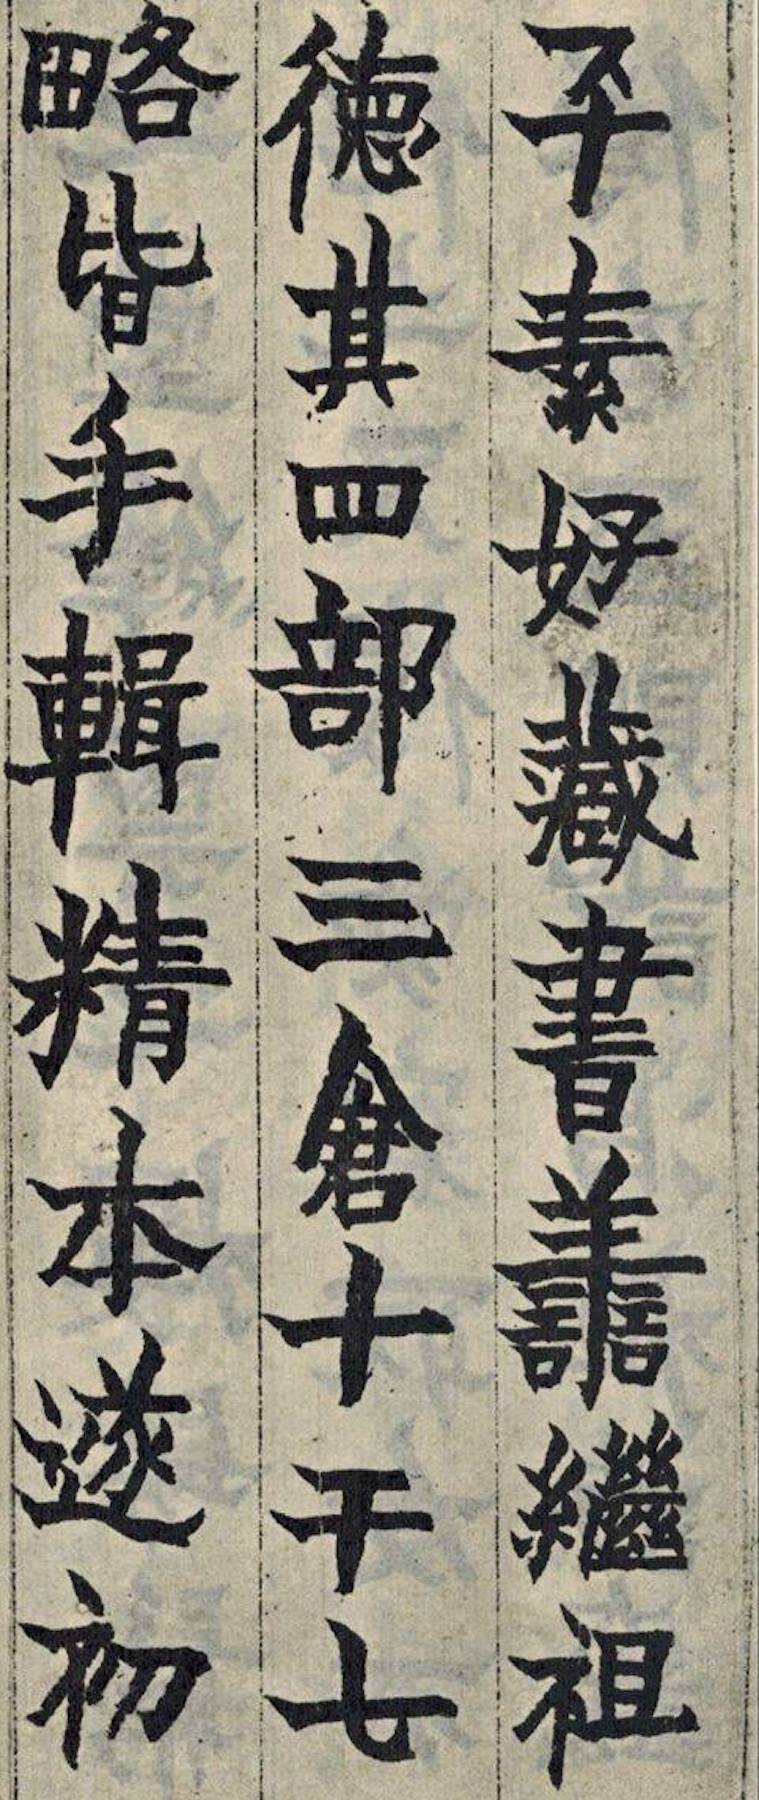 子素好藏書譱繼祖
德其四部三倉十千七
略皆手輯精本遂初